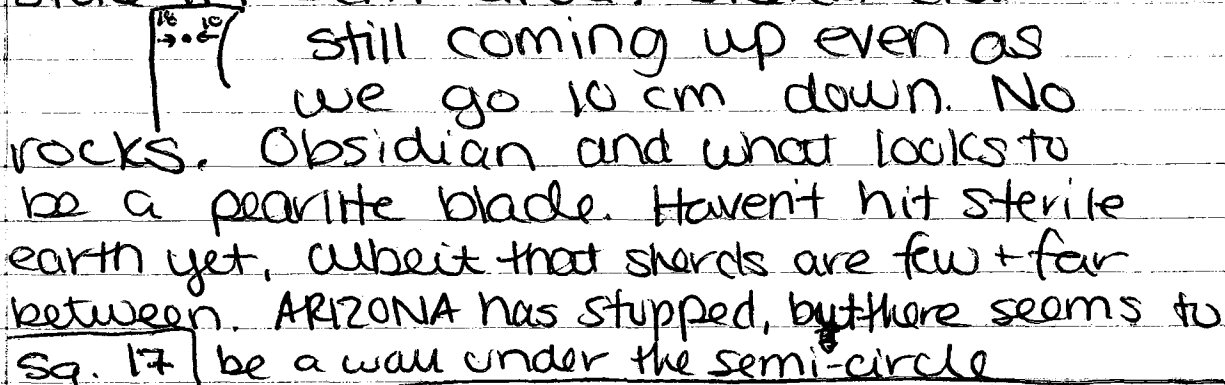 18 10
still coming up even as
we go 10 cm down. No
rocks. Obsidian and what looks to
be a pearlite blade. Haven't hit sterile
earth yet, albeit that sherds are few + far
between. ARIZONA has stopped, but there seems to
Sq. 17 be a wall under the semi-circle